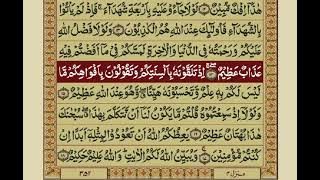 هٰذَاۤ اِفْكٌ مُّبِیْنٌ ﴿۱۲﴾ لَوْلَا جَآءُوْ عَلَیْهِ بِاَرْبَعَةِ شُهَدَآءَ ۚ فَاِذْ لَمْ یَاْتُوْا
بِالشُّهَدَآءِ فَاُولٰٓىِٕكَ عِنْدَ اللّٰهِ هُمُ الْكٰذِبُوْنَ ﴿۱۳﴾ وَلَوْلَا فَضْلُ اللّٰهِ
عَلَیْكُمْ وَرَحْمَتُهٗ فِی الدُّنْیَا وَالْاٰخِرَةِ لَمَسَّكُمْ فِیْ مَاۤ اَفَضْتُمْ فِیْهِ
عَذَابٌ عَظِیْمٌ ﴿۱۴﴾ اِذْ تَلَقَّوْنَهٗ بِاَلْسِنَتِكُمْ وَتَقُوْلُوْنَ بِاَفْوَاهِكُمْ مَّا
لَیْسَ لَكُمْ بِهٖ عِلْمٌ وَّتَحْسَبُوْنَهٗ هَیِّنًا ۖ وَّهُوَ عِنْدَ اللّٰهِ عَظِیْمٌ ﴿۱۵﴾
وَلَوْلَاۤ اِذْ سَمِعْتُمُوْهُ قُلْتُمْ مَّا یَكُوْنُ لَنَاۤ اَنْ نَّتَكَلَّمَ بِهٰذَا ۖ سُبْحٰنَكَ
هٰذَا بُهْتَانٌ عَظِیْمٌ ﴿۱۶﴾ یَعِظُكُمُ اللّٰهُ اَنْ تَعُوْدُوْا لِمِثْلِهٖۤ اَبَدًا اِنْ
كُنْتُمْ مُّؤْمِنِیْنَ ﴿۱۷﴾ وَیُبَیِّنُ اللّٰهُ لَكُمُ الْاٰیٰتِ ؕ وَاللّٰهُ عَلِیْمٌ حَكِیْمٌ ﴿۱۸﴾
منزل ۴ ۳۵۲